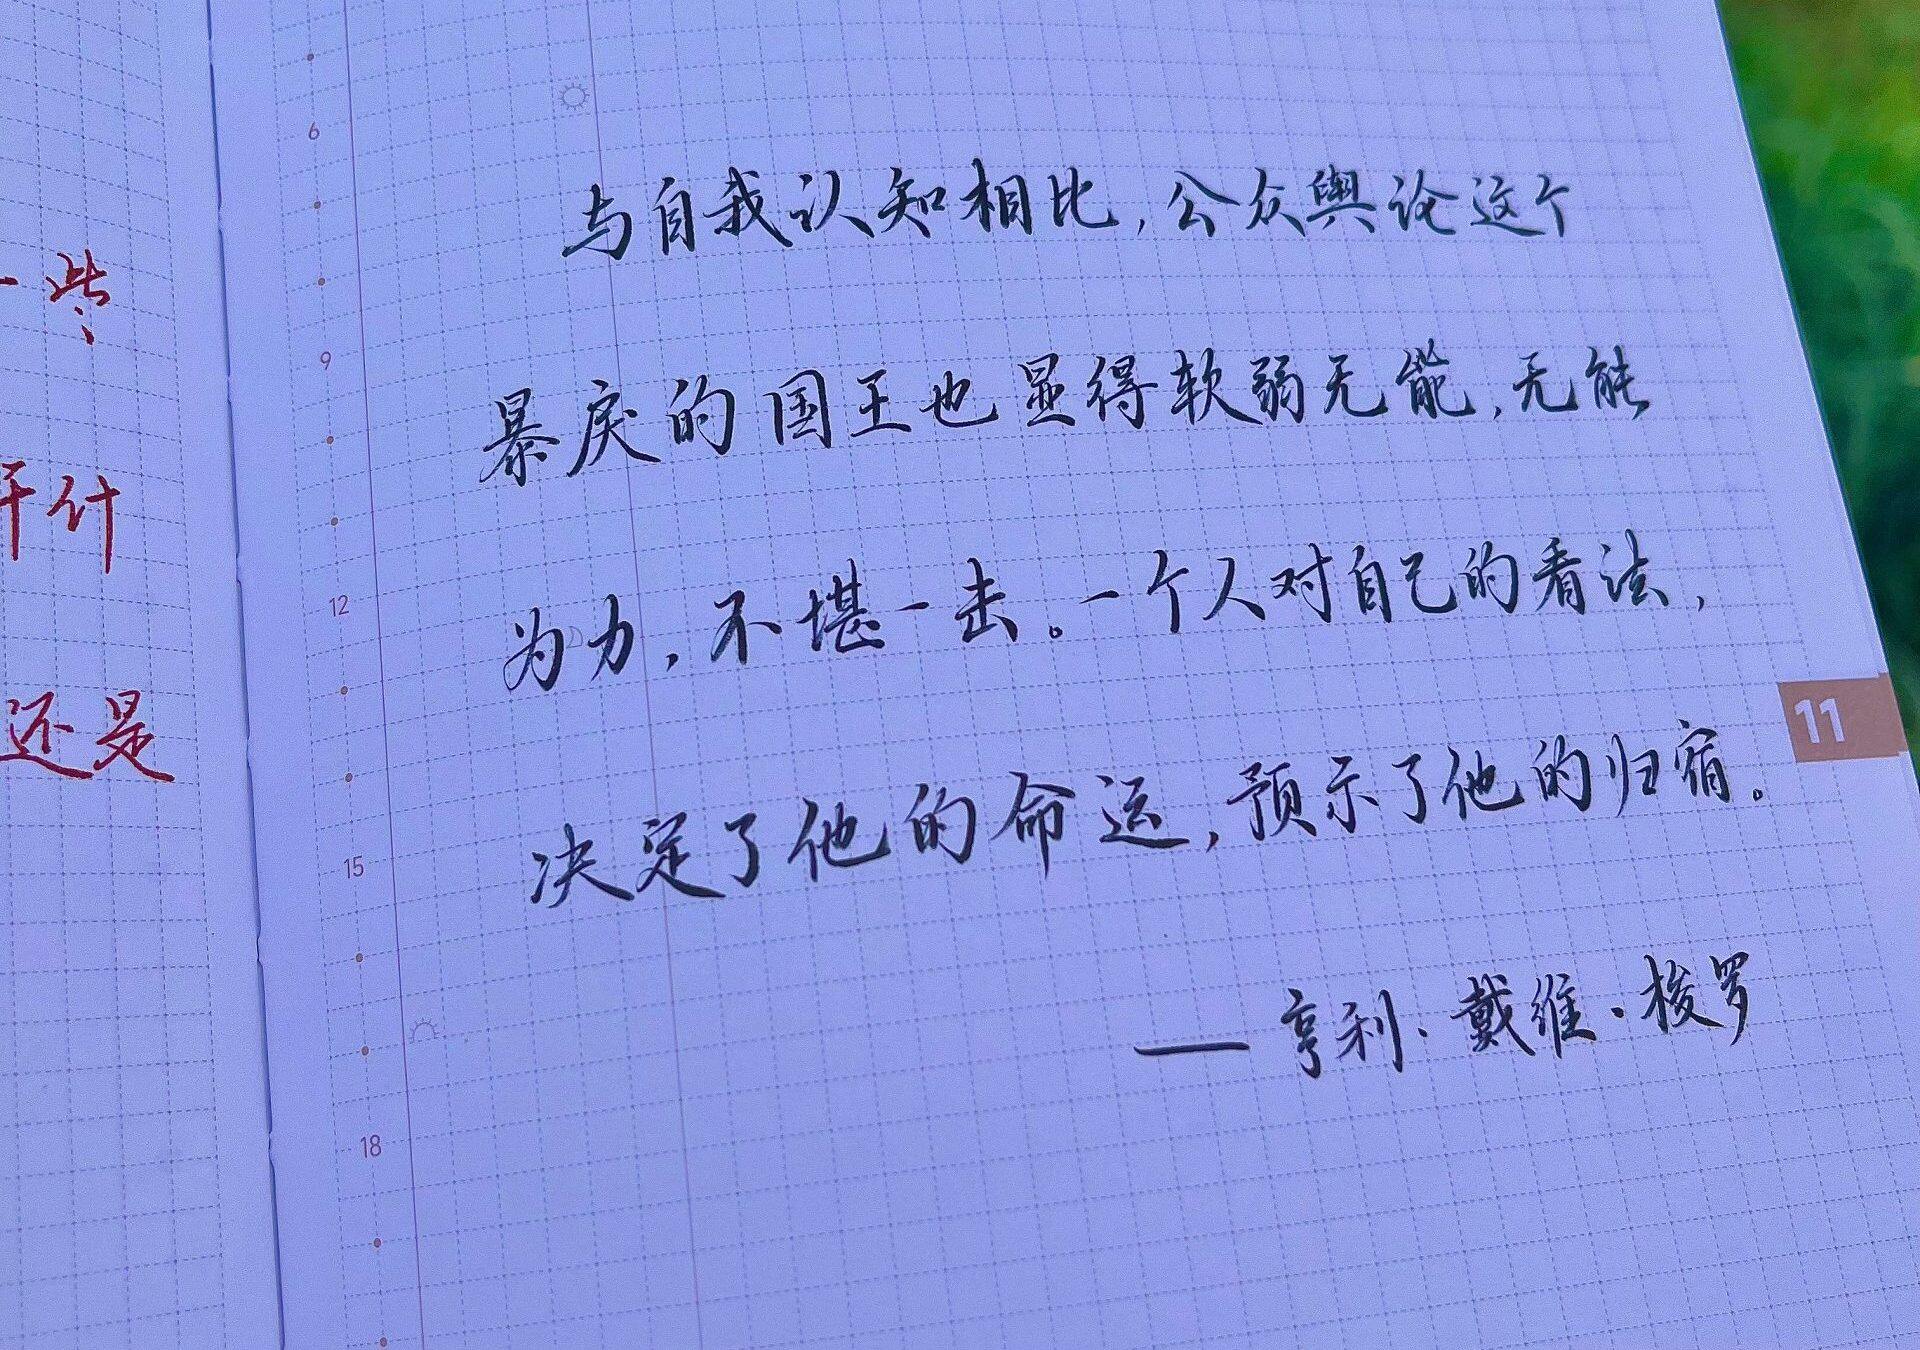 一些
评什
还是
6
9
12
15
18
与自我认知相比，公众舆论这个
暴戾的国王也显得软弱无能，无能
为力，不堪一击。一个人对自己的看法，
决定了他的命运，预示了他的归宿。
——亨利·戴维·梭罗
11